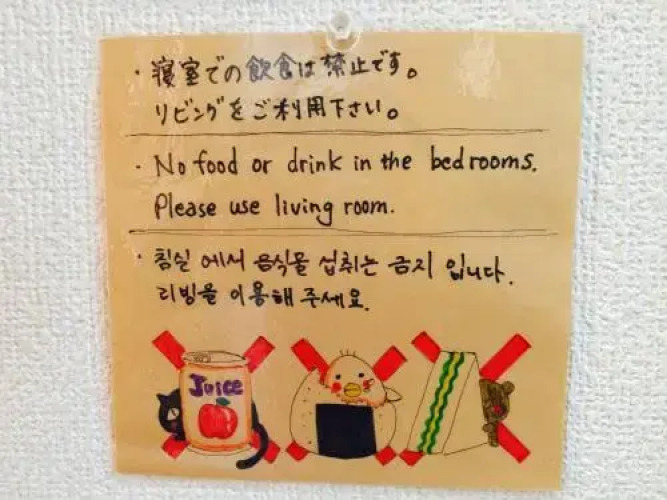 ・寝室での飲食は禁止です。
リビングをご利用下さい。
・No food or drink in the bedrooms.
Please use living room.
・침실 에서 음식물 섭취는 금지 입니다.
리빙을 이용해 주세요.
Juice